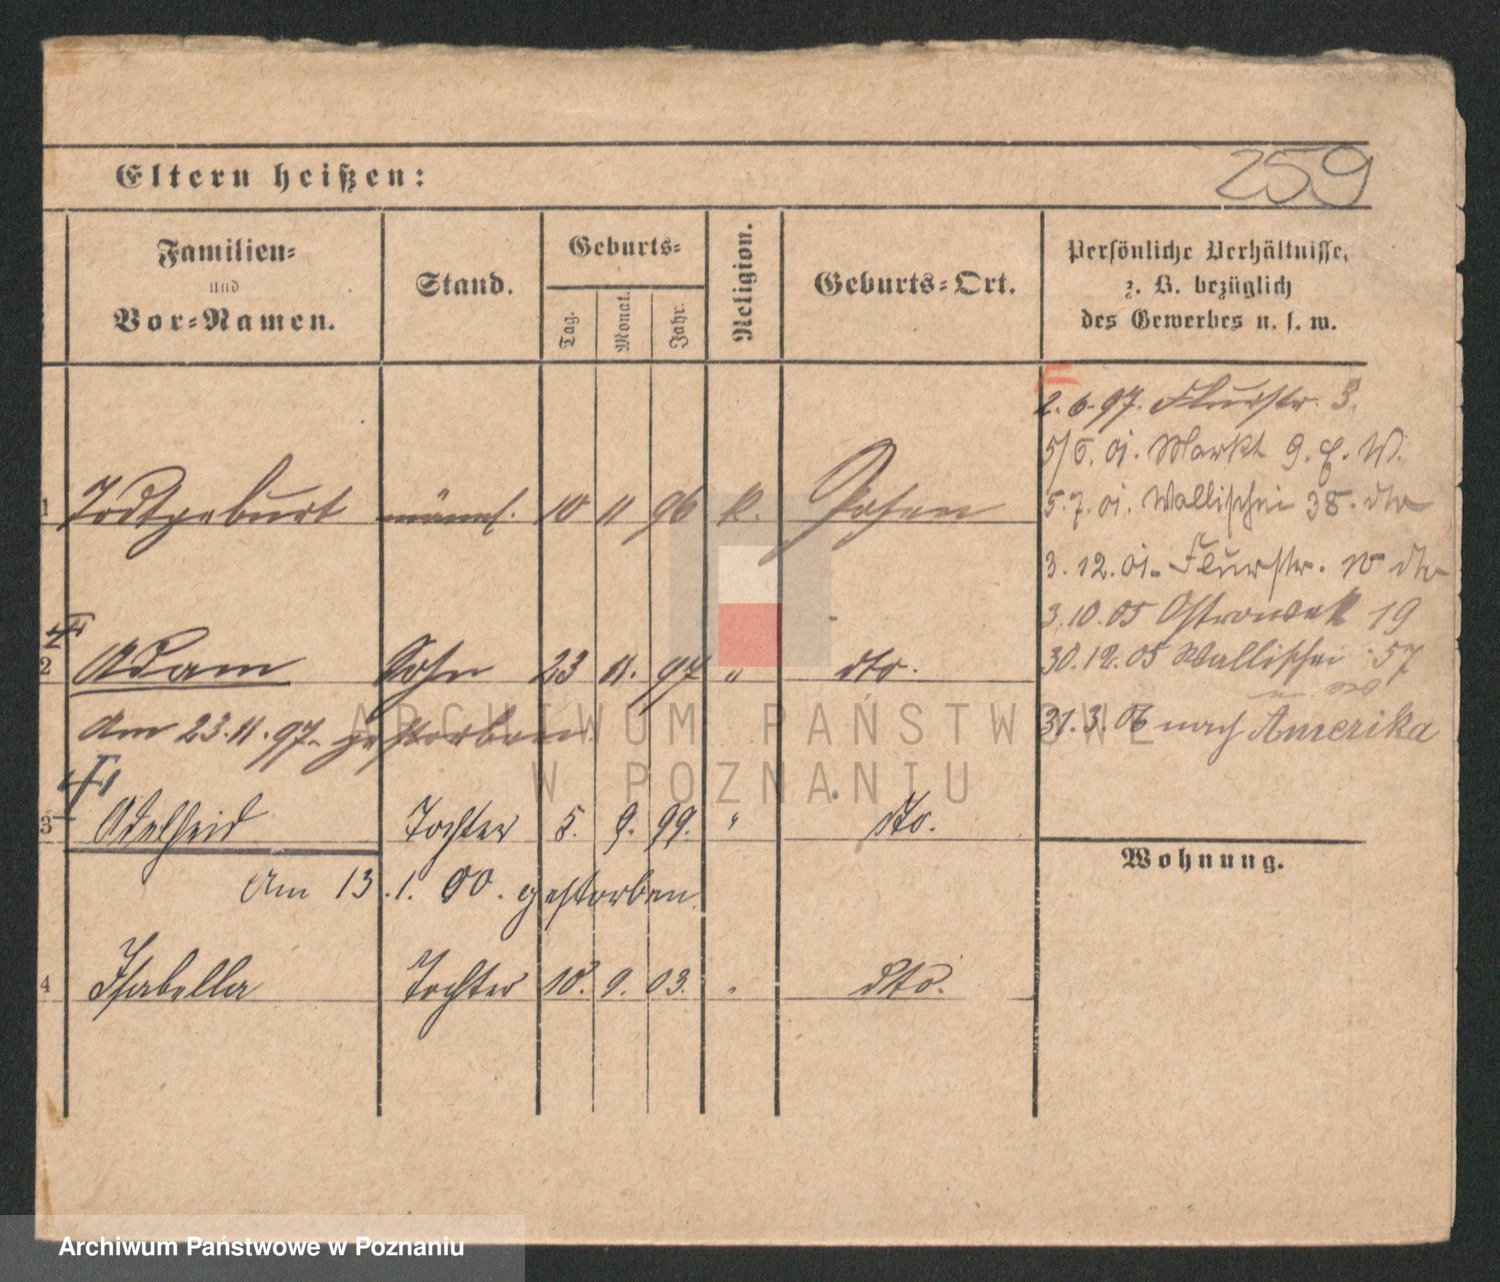 259
Eltern heißen:
Familien-
und
Vor-Namen.
Stand.
Geburts-
Tag.
Monat.
Jahr.
Religion.
Geburts-Ort.
Persönliche Verhältnisse,
z. B. bezüglich
des Gewerbes u. s. w.
1 Todtgeburt männl. 10 11 96 k. Posen
2 Adam Sohn 23 11. 97 " dto.
Am 23.11.97. gestorben.
3 Adelheid Tochter 5. 9. 99. " dto.
Am 13.1.00. gestorben.
4 Isabella Tochter 10. 9. 03. " dto.
2.6.97. Flurstr. 3.
5/6.01. Markt 9. W.
5.7.01. Wallischei 38. dto
3.12.01. Flurstr. 10 dto
3.10.05 Ostrowek 19
30.12.05 Wallischei 57
31.3.06 nach Amerika
Wohnung.
ARCHIWUM PAŃSTWOWE
W POZNANIU
Archiwum Państwowe w Poznaniu